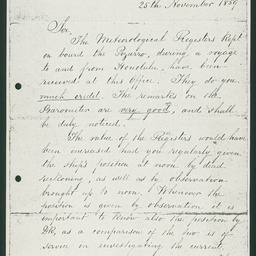 25th November 1859
Sir,
The Meteorological Registers kept
on board the Pizarro, during a voyage
to and from Honolulu, have been
received at this Office. They do you
much credit. The remarks on the
Barometer are very good, and shall
be duly noticed.
The value of the Registers would have
been increased had you regularly given
the ship's position at noon by dead
reckoning, as well as by observation
brought up to noon. Whenever the
position is given by observation it is
important to know also the position by
DR, as a comparison of the two is of
service in investigating the current.